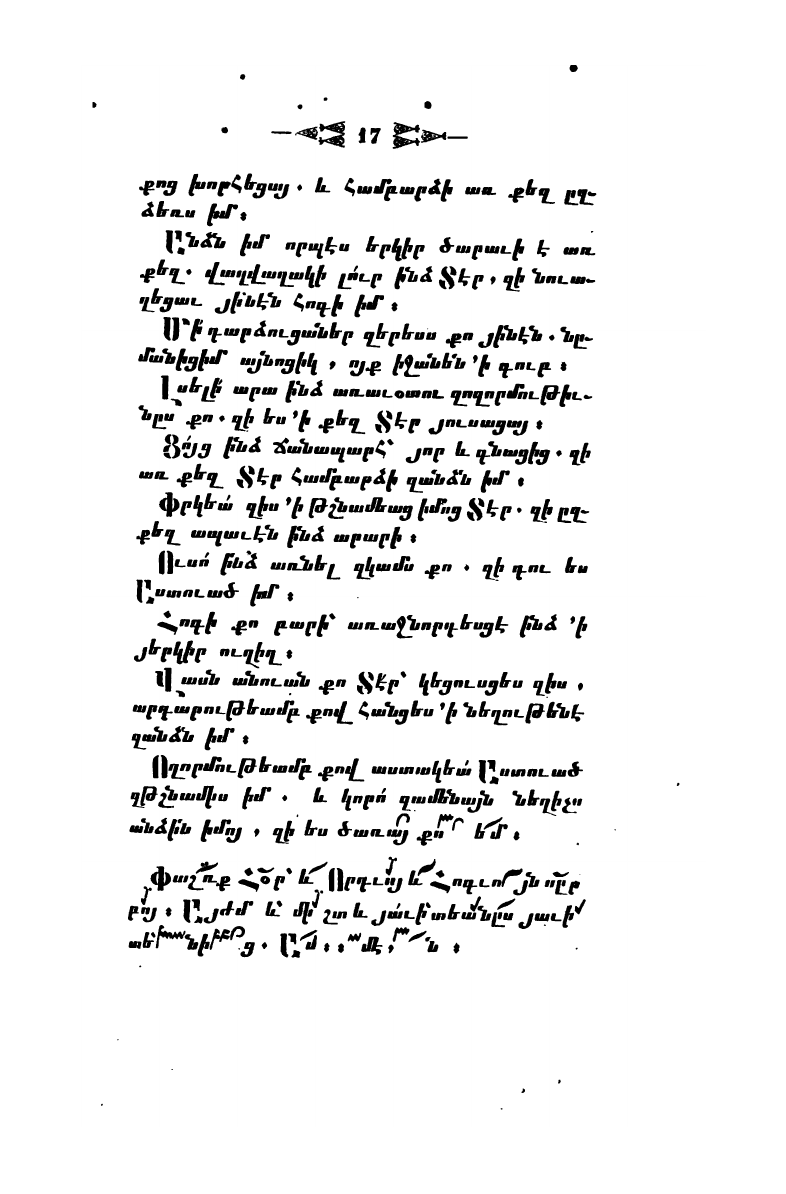 17
քոց խորհեցայ . և համբարձի առ քեզ ըզ-
ձեռս իմ :
Անձն իմ որպէս երկիր ծարաւի է առ
քեզ . վաղվաղակի լո՛ւր ինձ Տէր , զի նուա-
ղեցաւ յինէն հոգի իմ :
Մի՛ դարձուցաներ զերեսս քո յինէն . նը-
մանիցիմ այնոցիկ , ոյք իջանեն ՚ի գուբ :
Լսելի՛ արա ինձ առաւօտու զողորմութիւ-
նըս քո . զի ես ՚ի քեզ Տէր յուսացայ :
Ցո՛յց ինձ ճանապարհ՝ յոր և գնացից . զի
առ քեզ Տէր համբարձի զանձն իմ :
Փրկեա՛ զիս ՚ի թշնամեաց իմոց Տէր . զի ըզ-
քեզ ապաւէն ինձ արարի :
Ուսո՛ ինձ առնել զկամս քո . զի դու ես
Աստուած իմ :
Հոգի քո բարի՝ առաջնորդեսցէ ինձ ՚ի
յերկիր ուղիղ :
Վասն անուան քո Տէր՝ կեցուսցես զիս ,
արդարութեամբ քով հանցես ՚ի նեղութենէ
զանձն իմ :
Ողորմութեամբ քով սատակեա՛ Աստուած
զթշնամիս իմ . և կորո՛ զամենայն նեղիչս
անձին իմոյ , զի ես ծառայ քո եմ :
Փառք Հօր՝ և Որդւոյ և Հոգւոյն սըր
բոյ : Այժմ և միշտ և յաւիտեանըս յաւի
տենից . Ամէն :